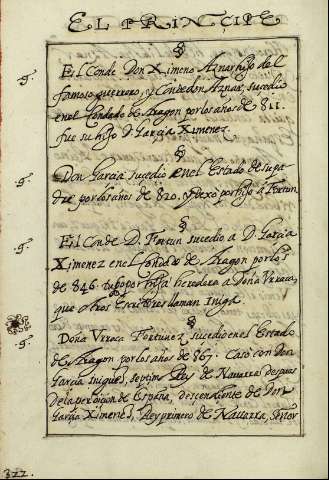 EL PRINCIPE
§
El Conde Don Ximeno Aznar hijo del
famoso guerrero, y Conde Don Aznar, sucedio
en el Condado de Aragon por los años de 811.
fue su hijo D. Garcia Ximenez.
§
Don Garcia sucedio en el Estado de su pa
dre por los años de 820. y dexò por hijo à Fortun
§
El Conde D. Fortun sucedio a D. Garcia
Ximenez en el Condado de Aragon por los
de 846 tubo por hija heredera a Doña Vrraca,
que otros Escritores llaman Iniga.
§
Doña Vrraca Fortunez sucedio en el Estado
de Aragon por los años de 867. Casò con Don
Garcia Iniguez, septimo Rey de Nauarra despues
de la perdicion de España, descendiente de Don
Garcia Ximenez, Rey primero de Nauarra, Señor
322.